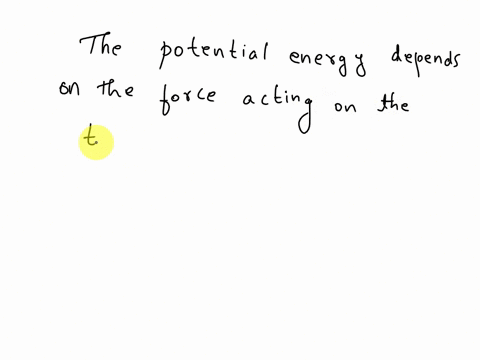 The potential energy depends
on the force acting on the
t